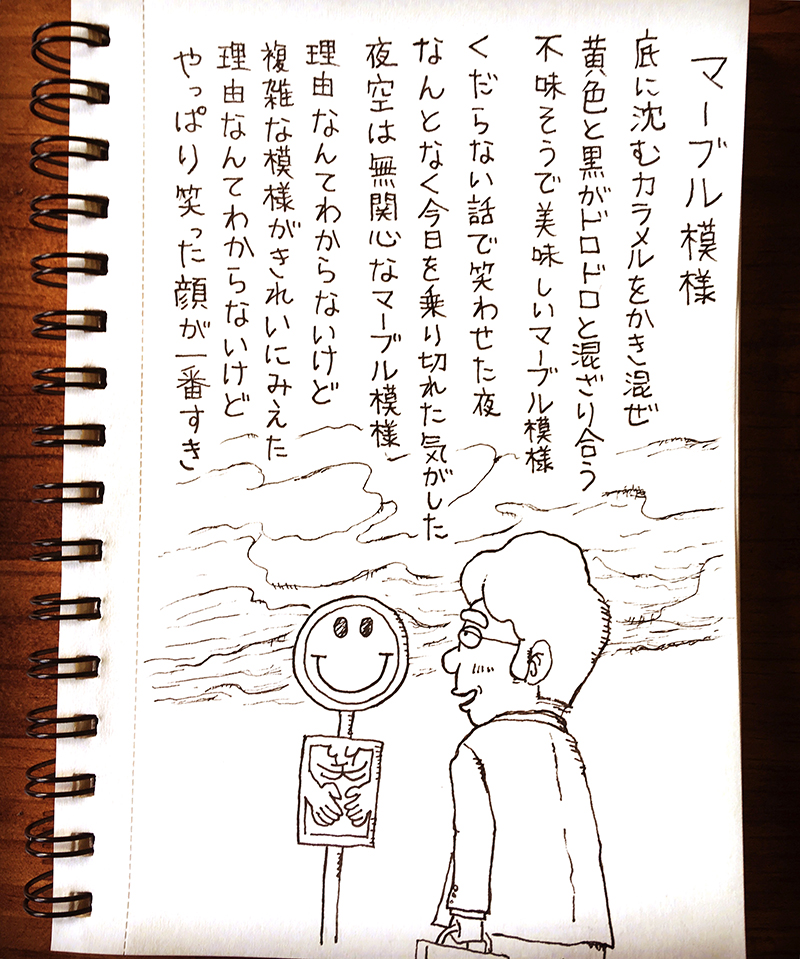 マーブル模様
底に沈むカラメルをかき混ぜ
黄色と黒がドロドロと混ざり合う
不味そうで美味しいマーブル模様
くだらない話で笑わせた夜
なんとなく今日を乗り切れた気がした
夜空は無関心なマーブル模様
理由なんてわからないけど
複雑な模様がきれいにみえた
理由なんてわからないけど
やっぱり笑った顔が一番すき